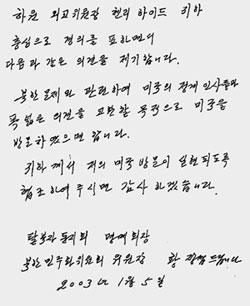 하원 외교위원장 헨리 하이드 귀하
충심으로 경의를 표하면서
다음과 같은 의견을 제기합니다.
북한 문제와 관련하여 미국의 정계 인사들과
폭 넓은 의견을 교환할 목적으로 미국을
방문하였으면 합니다.
귀하께서 저의 미국 방문이 실현되도록
협조하여 주시면 감사하겠습니다.
탈북자 동지회 명예회장
북한 민주화 위원회 위원장 황장엽 드립니다
2003년 1월 5일